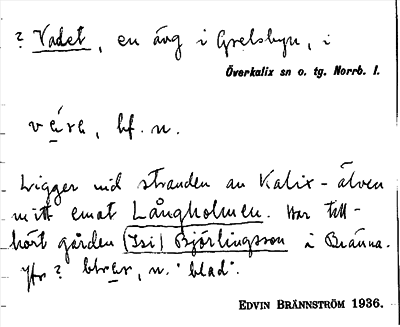 ? Vadet, en äng i Grelsbyn, i
Överkalix sn o. tg. Norrb. l.
bf. n.
Ligger vid stranden av Kalix-älven
mitt emot Långholmen. Har till-
hört gården (Isi) Björlingsson i Bränna.
Jfr ? n. "blad".
EDVIN BRÄNNSTRÖM 1936.